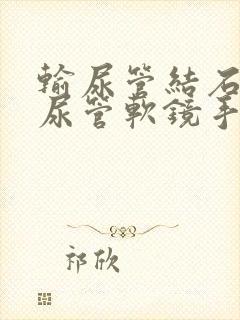 輸尿管結石
尿管軟鏡手
祁欣